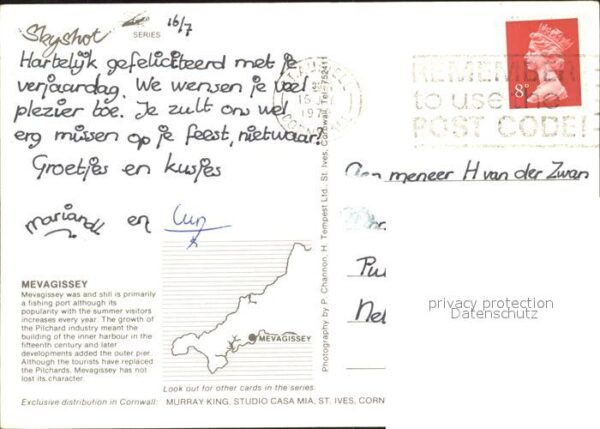 Skyshot
SERIES
16/7
Hartelijk gefeliciteerd met je
verjaardag. We wensen je veel
plezier toe. Je zult ons wel
erg missen op je feest, nietwaar?
Groetjes en kusjes
en
MEVAGISSEY
Mevagissey was and still is primarily
a fishing port although its
popularity with the summer visitors
increases every year. The growth of
the Pilchard industry meant the
building of the inner harbour in the
fifteenth century and later
developments added the outer pier.
Although the tourists have replaced
the Pilchards. Mevagissey has not
lost its character.
MEVAGISSEY
Look out for other cards in the series.
Exclusive distribution in Cornwall: MURRAY KING, STUDIO CASA MIA, ST. IVES, CORN
Photography by P. Channon, H. Tempest Ltd., St. Ives, Cornwall. Tel: 752411
REMEMBER
to use the
POST CODE!
8P
Aan meneer H van der Zwan
privacy protection
Datenschutz